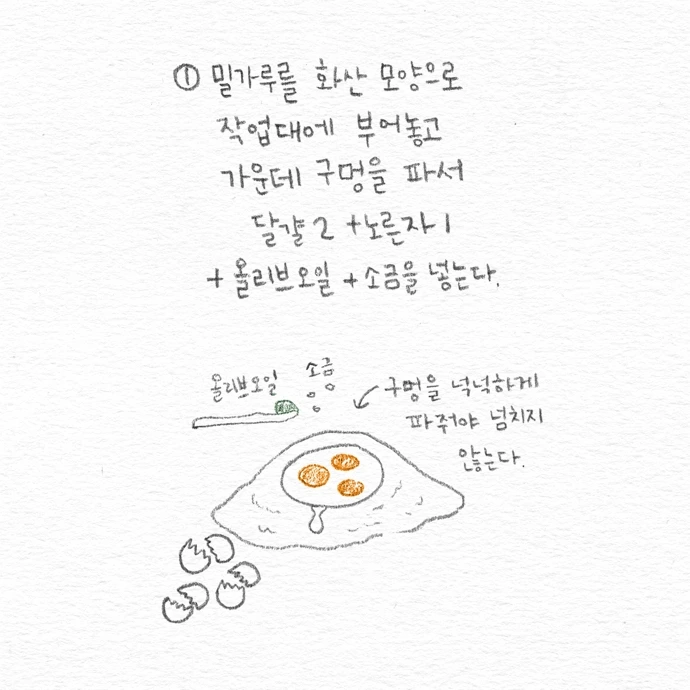 ① 밀가루를 화산 모양으로
작업대에 부어놓고
가운데 구멍을 파서
달걀2 +노른자1
+ 올리브오일 +소금을 넣는다.
올리브오일
소금
구멍을 넉넉하게
파줘야 넘치지
않는다.